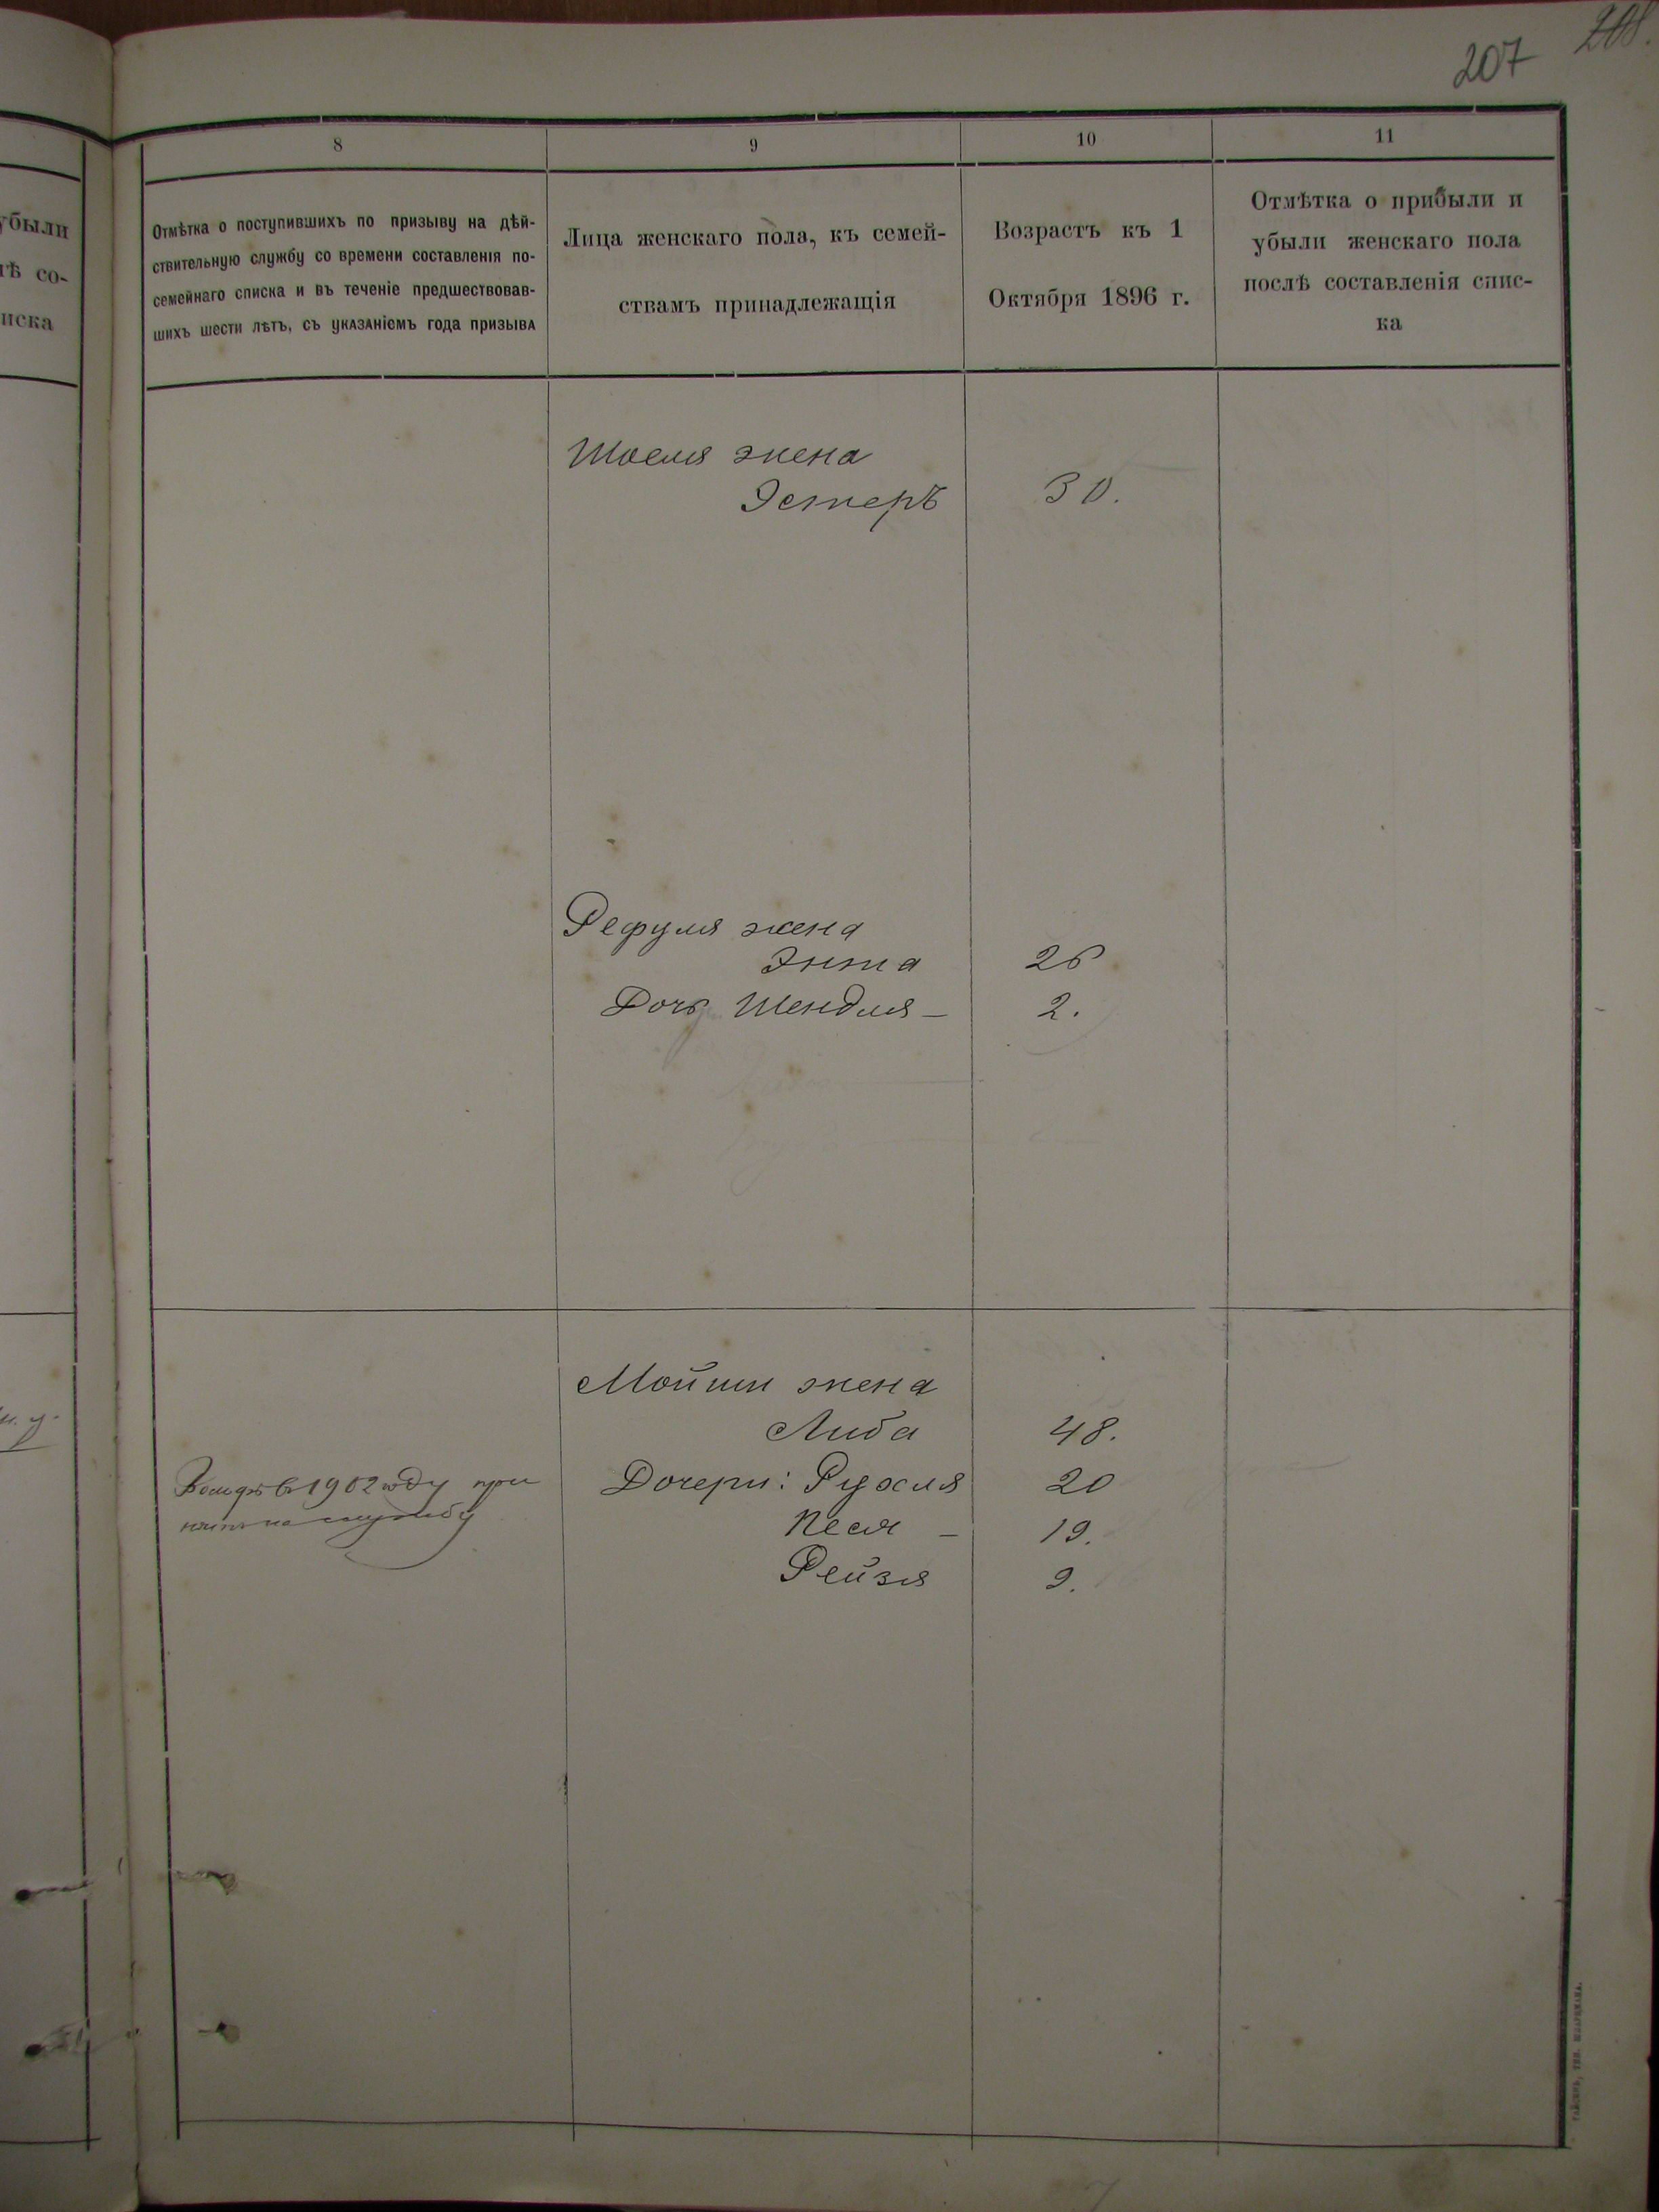 207
208.
были
ѣ со-
иска
8
9
10
11
Отмѣтка о поступившихъ по призыву на дѣй-
ствительную службу со времени составленія по-
семейнаго списка и въ теченіе предшествовав-
шихъ шести лѣтъ, съ указаніемъ года призыва
Лица женскаго пола, къ семей-
ствамъ принадлежащія
Возрастъ къ 1
Октября 1896 г.
Отмѣтка о прибыли и
убыли женскаго пола
послѣ составленія спис-
ка
жена
Эстеръ 30.
Рефуля жена
Энта 26
Дочь Шендля — 2.
Мойши жена
Либа 48.
Дочери: Рухля 20
Песя — 19.
Рейзя 9.
въ 1902 году при
нятъ на службу